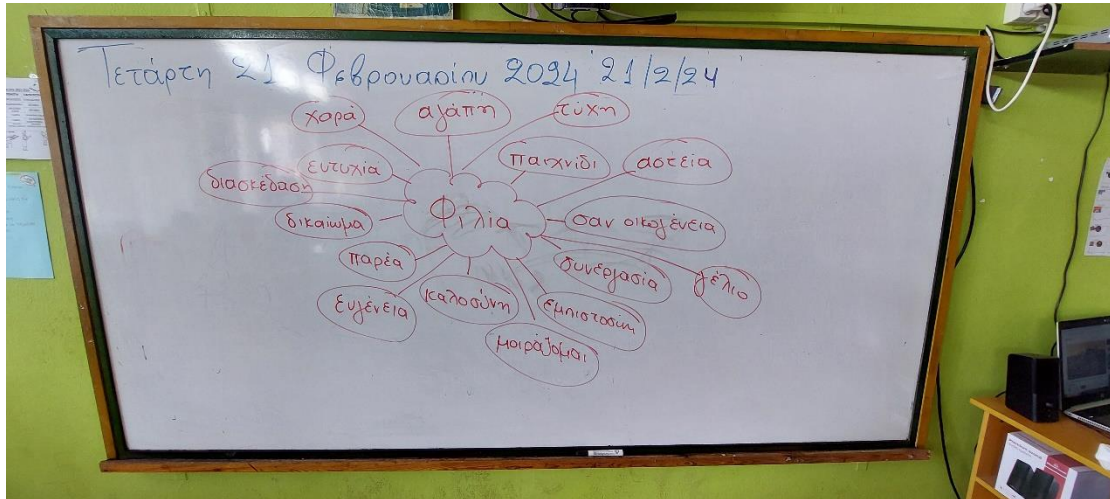 Τετάρτη 21 Φεβρουαρίου 2024 21/2/24
χαρά
αγάπη
τύχη
ευτυχία
παιχνίδι
αστεία
διασκέδαση
δικαίωμα
Φιλία
σαν οικογένεια
παρέα
συνεργασία
γέλιο
ευγένεια
καλοσύνη
εμπιστοσύνη
μοιράζομαι